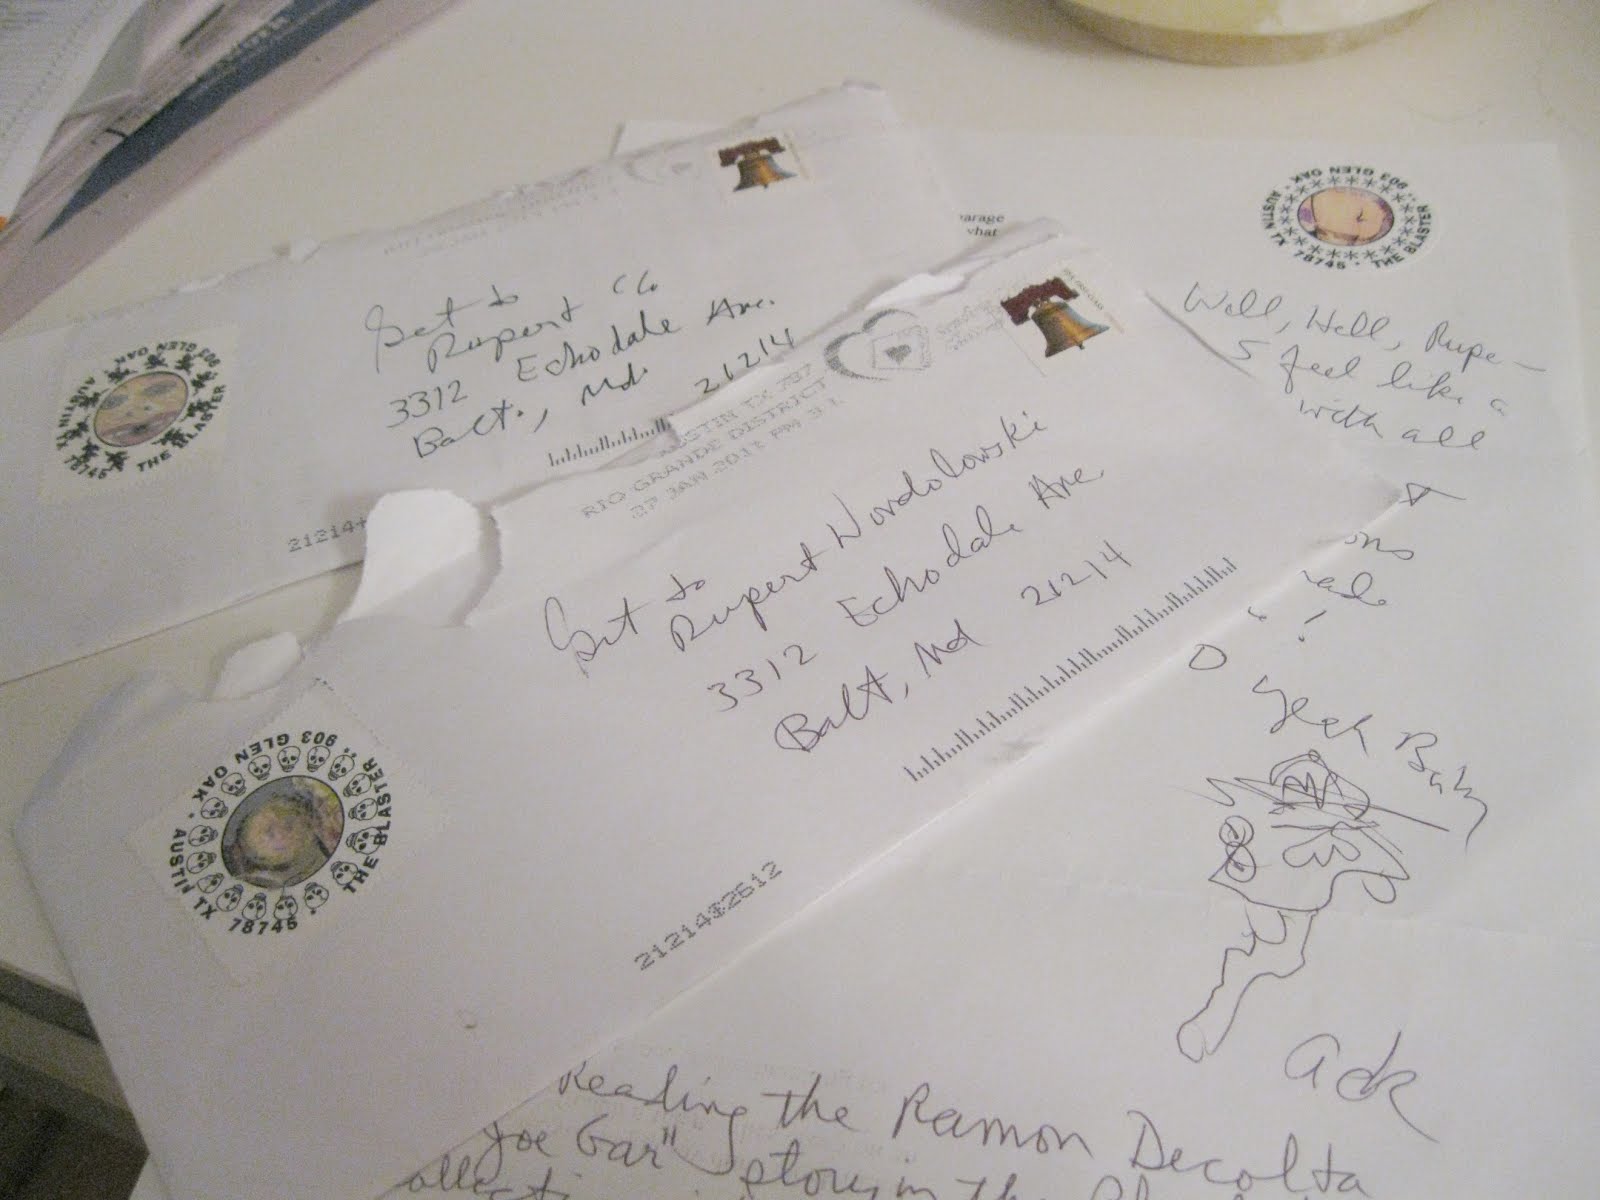 Get to
Rupert c/o
3312 Echodale Ave.
Balt., Md. 21214
903 GLEN OAK · AUSTIN TX 78745 · THE BLASTER
21214+
AUSTIN TX 787
RIO GRANDE DISTRICT
27 JAN 2011 PM 3 L
Get to
Rupert Wondolowski
3312 Echodale Ave.
Balt, Md 21214
903 GLEN OAK · AUSTIN TX 78745 · THE BLASTER
2121432612
arage
what
903 GLEN OAK · AUSTIN TX 78745 · THE BLASTER
Well, Hell, Rupe —
I feel like a
with all
ons
!
O yeah Baby
Ack
Reading the Ramon Decolta
Joe Gar"
story in the